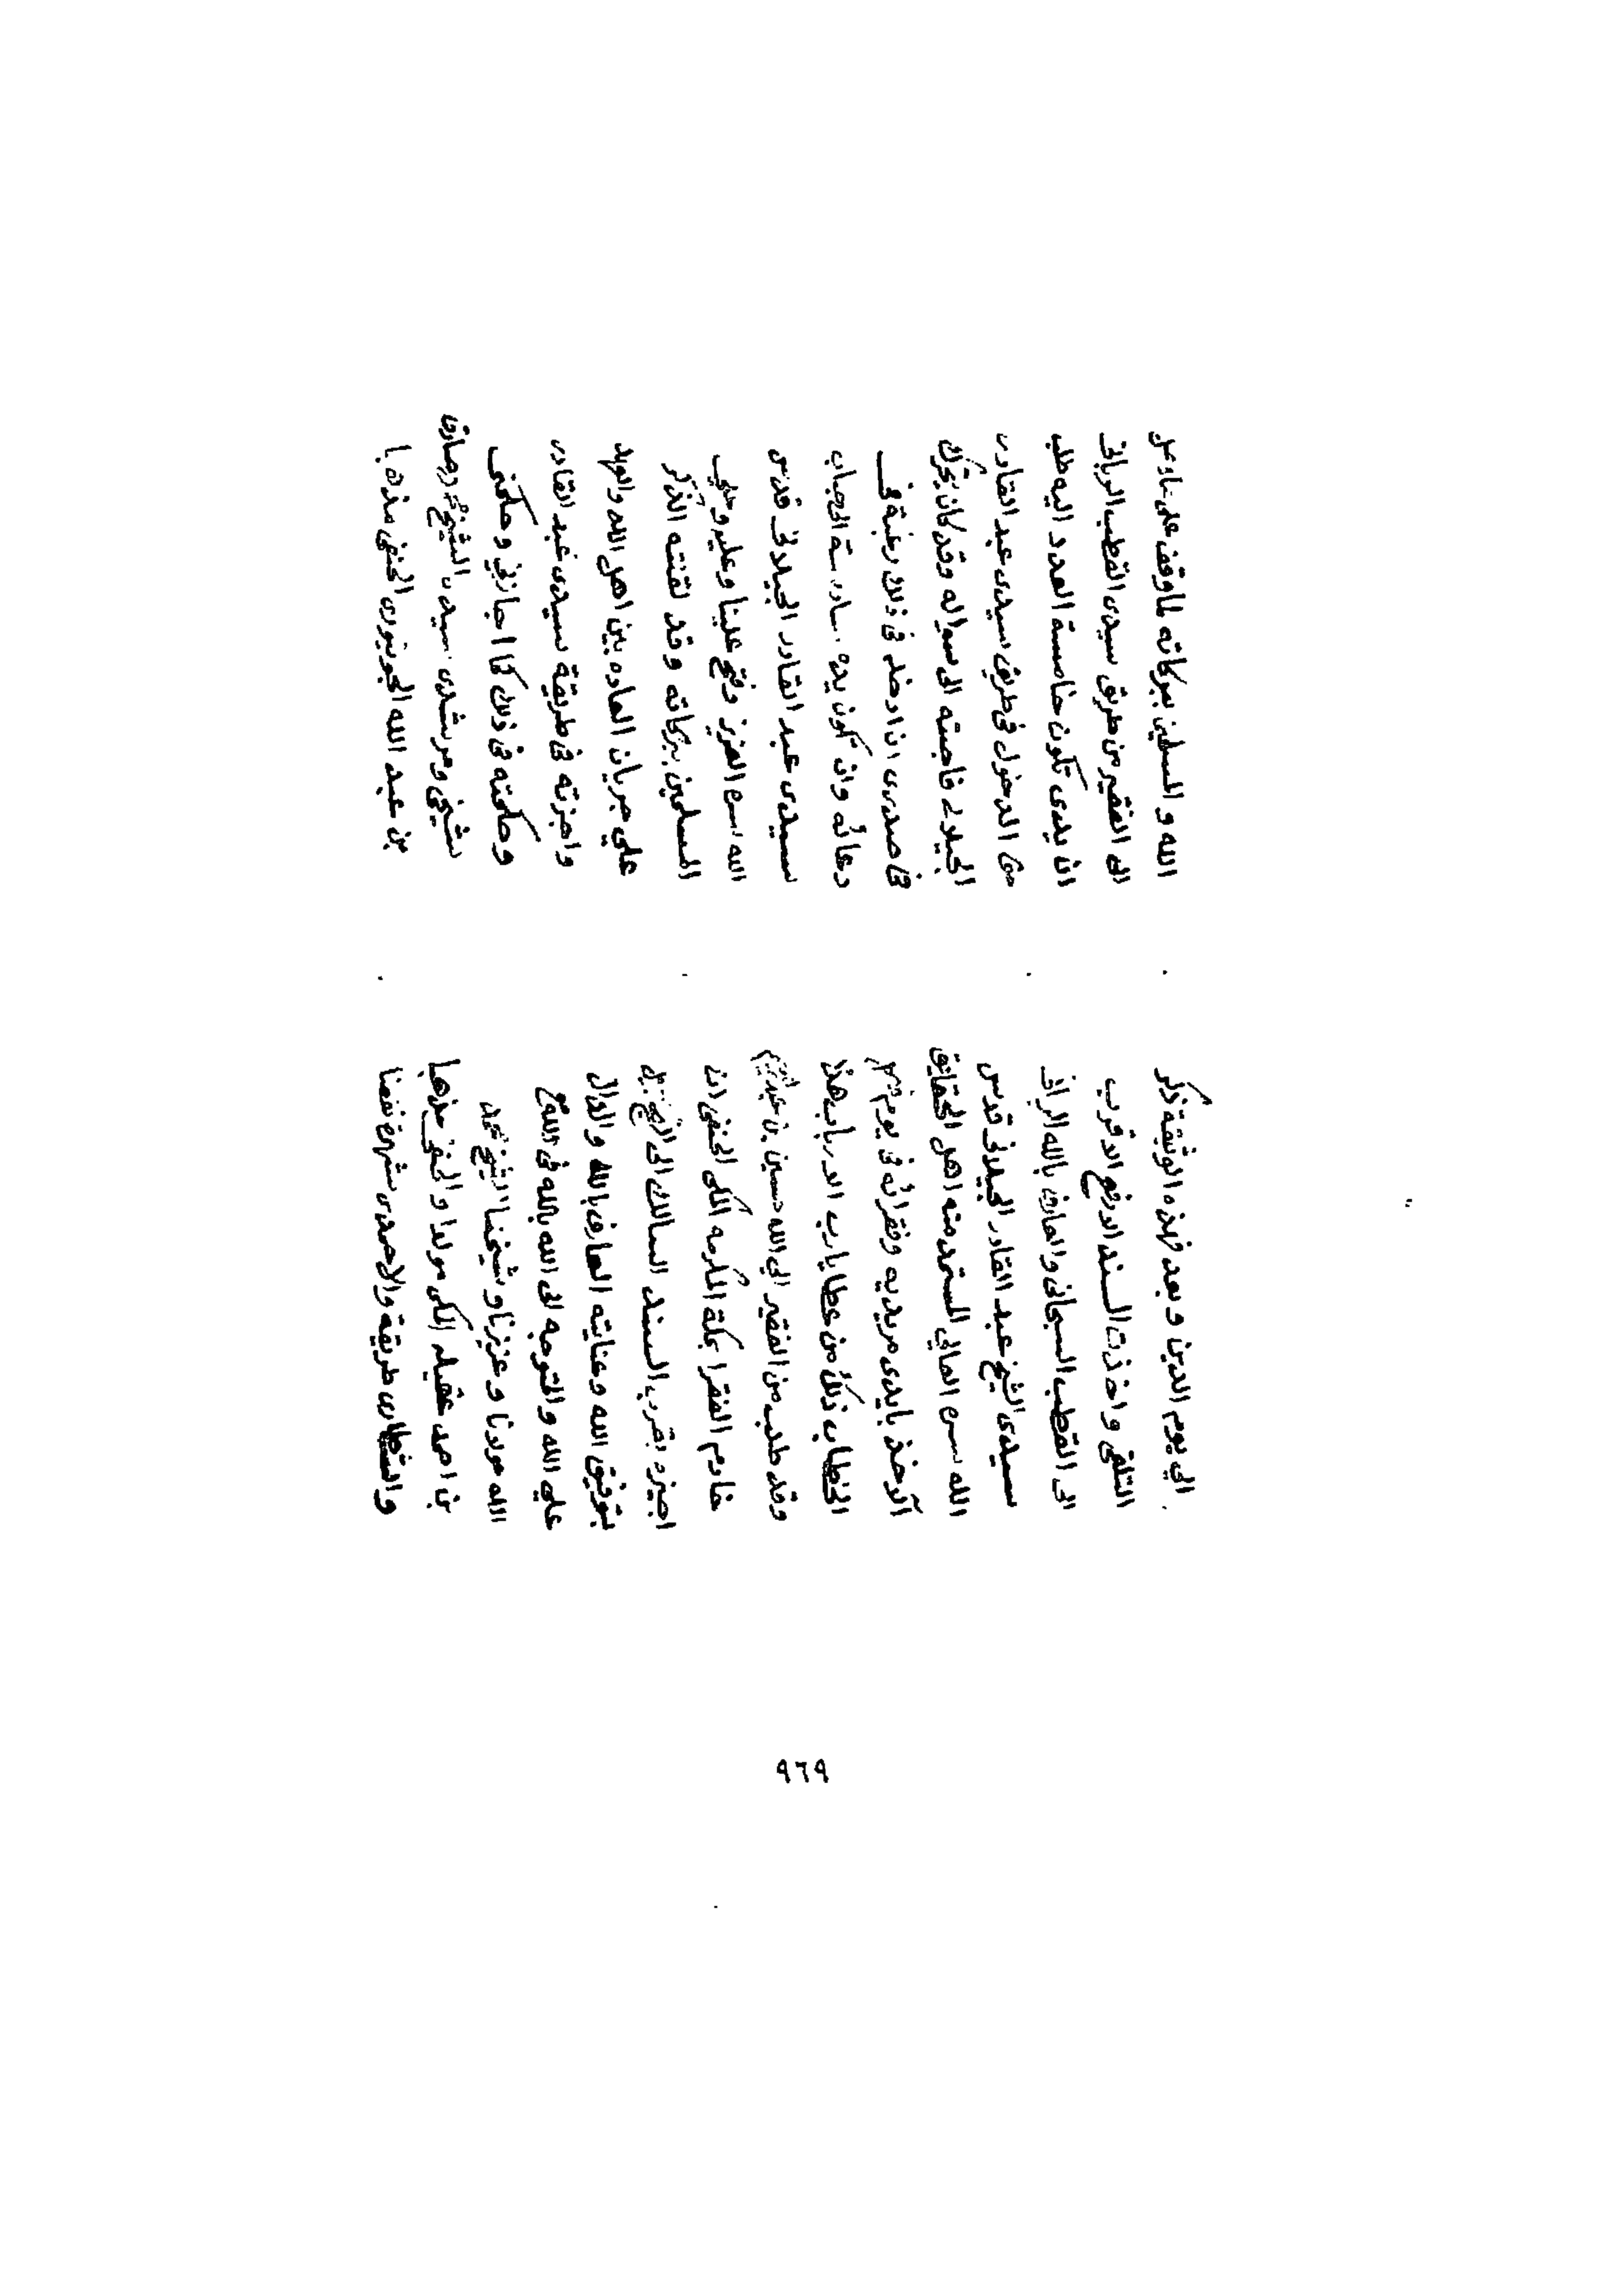 الي يوم الدين وبعد فهذه الوثيقة ذكر
التلقي واخذت السند الارفع الاقرب
الى القطب السبحاني والعارف بالله الرباني
سيدى الشيخ عبد القادر الجيلاني قدس
الله سره العالي المستمد منه اهل الحقايق
الاخذ بايدى مريديه وفقرائه في يوم
الخطاب ذلك من عطايا رب الارباب هذا
وقد طلب من الفقير الي الله حسين بن عبد الرحيم
خادم الفقرا بمكة المكرمه المكى الحنفى ان
اجيزه بقرب السند السالك الى
بتوفيق الله وعنايته العارف بالله والدال
علي الله والمتوجه الى الله بالله في الله
الله مولانا وعزيزنا وشيخنا الشيخ محمد
بن احمد عقيله المكى مولدا والحنفى مذهبا
والشطارى طريقة والاحمدى شهرة نفعنا
الله والمسلمين ببركاته لما وقف على
الى الفقير من طريق سيدى القطب الربانى
ان يدى تكون خامسة العدد اليه طلب
منى الدخول في طريق سيدى عبد القادر
الجيلاني فاجبته الى سواله وقد كان يتحرك
في صدرى ان ادخله في ذلك رغبة في
دعائه وان تكون يده
سيدى عبد القادر الجيلاني قدس
الله سره العزيز وفتح علينا وعليه وعلي
المسلمين ببركاته وقد لقنته الذكر
علي جريان العاده بين اهل الله والعهد
واجزته في طريقة سيدى عبد القادر
وحكمته في ذلك كما اجازني وحكمنى
شيخي ومرشدى سيدى الشيخ محمد صادق
بن عبد الله الجونبورى الحنفى مذهبا
٩٦٩